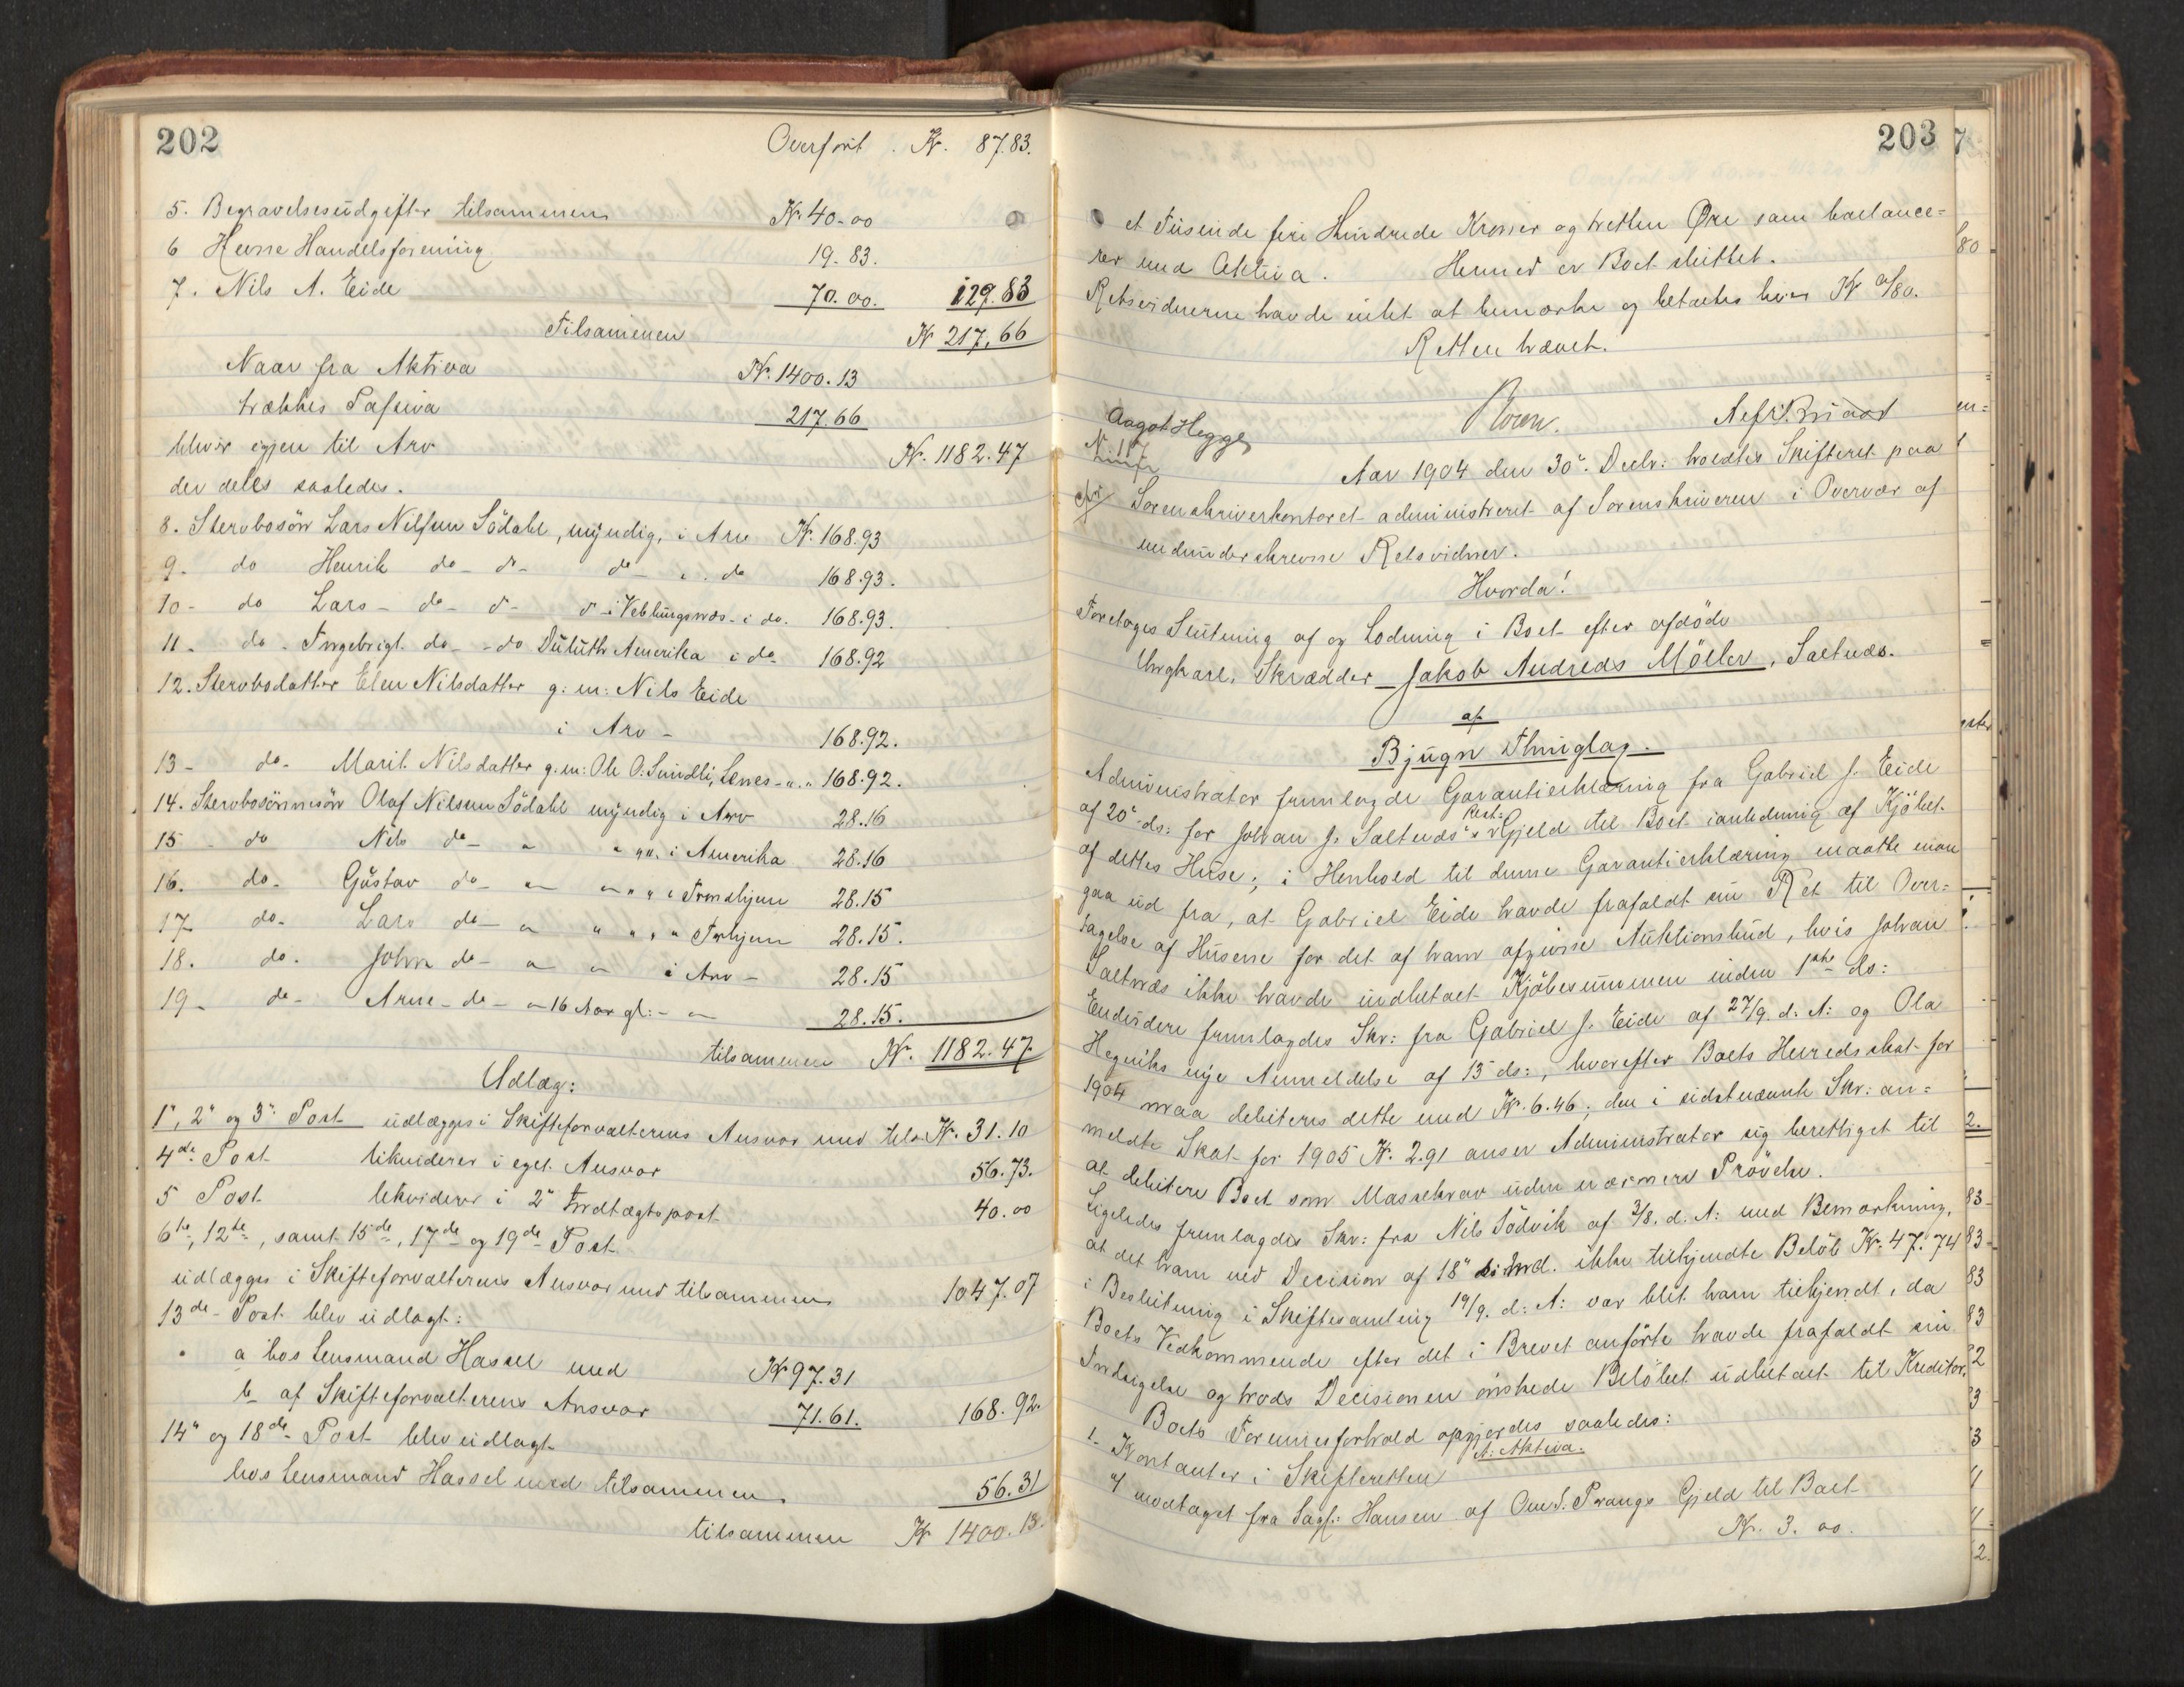 202
Overført Kr. 87.83.
5. Begravelsesudgifter tilsammen Kr. 40-00
6 Hevne Handelsforening 19-83.
7. Nils A. Eide 70.00. 129.83
Tilsammen Kr 217,66
Naar fra Aktiva Kr. 1400.13
trækkes Passiva 217.66
bliver igjen til Arv Kr. 1182.47
der deles saaledes.
8. Stervbosön Lars Nilsen Södahl, myndig, i Arv Kr. 168.93
9- do Henrik do- do- do- i do 168.93.
10- do Lars- do- d- d- i Veblungsnæs- i do. 168.93.
11- do- Ingebrigt do- -do Duluth Amerika i do- 168.92
12. Stervbodatter Elen Nilsdatter g: m: Nils Eide
i Arv- 168.92.
13- do- Marit Nilsdatter g.m: Ole O. Sundli, -"-" 168.92.
14. Stervbosönnesön Olaf Nilsen Södahl myndig i Arv 28.16
15- do Nils do- " " i Amerika 28.16
16. do- Gustav do- " " " " i Trondhjem 28.15
17- do- Lars do- " " " " " Trhjem 28.15.
18. do. John do- " " i Arv- 28.15
19- do- Arne- do- "-16 Aar gl:- " 28.15.
tilsammen Kr. 1182.47.
Udlæg:
1", 2" og 3" Post udlægges i Skifteforvalterens Ansvar med tils. Kr. 31.10
4de Post likviderer i eget Ansvar 56.73.
5 Post likviderer i 2" Indtægtspost 40.00
6te, 12te, samt 15de, 17de og 19de Post
udlægges i Skifteforvalterens Ansvar med tilsammen 1047.07
13de- Post blev udlagt:
a hos Lensmand Hassel med Kr 97.31
b- af Skifteforvalterens Ansvar 71.61. 168.92.
14" og 18de- Post blev udlagt
hos Lensmand Hassel med tilsammen 56.31
tilsammen Kr 1400.13.
203
et Tusinde fire Hundrede Kroner og tretten Øre som balance-
rer med Aktiva. Hermed er Boet sluttet.
Retsvidnerne havde intet at bemærke og betaltes hver Kr 0/80.
Retten hævet.
Aagot Hegge
Aar 1904 den 30". Decbr: holdtes Skifteret paa
Sorenskriverkontoret administreret af Sorenskriveren i Overvær af
medunderskrevne Retsvidner.
Hvorda!
Foretoges Slutning af og Lodning i Boet efter afdöde
Ungkarl, Skrædder Jakob Andreas Möller, Saltnæs.
af
Bjugn Thinglag.
Administrator fremlagde Garantierklæring fra Gabriel J. Eide
af 20" ds: for Johan J. Saltnæs's Rest: Gjeld til Boet i anledning af Kjöbet
af dettes Huse; i Henhold til denne Garantierklæring maatte man
gaa ud fra, at Gabriel Eide havde frafaldt sin Ret til Over=
tagelse af Husene for det af ham afgivne Auktionsbud, hvis Johan
Saltnæs ikke havde indbetalt Kjöbesummen inden 1ste ds:
Endvidere fremlagdes Skr: fra Gabriel J. Eide af 27/9. d: A: og Ola
Hegviks nye Anmeldelse af 15 ds:, hvorefter Boets Herredsskat for
1904 maa debiteres dette med Kr. 6.46; den i sidstnævnte Skr: an=
meldte Skat for 1905 Kr. 2.91 anser Administrator sig berettiget til
at debitere Boet som Massekrav uden nærmere Prövelse.
Ligeledes fremlagdes Skr: fra Nils Södvik af 3/8. d. A: med Bemærkning,
at det ham ved Decision af 18" s. Md. ikke tilkjendte Belöb Kr. 47.74
i Beslutning i Skiftesamling 19/9. d: A: var blit ham tilkjendt, da
Boets Vedkommende efter det i Brevet anförte havde frafaldt sin
Indsigelse og trods Decisionen önskede Belöbet udbetalt til Kreditor.
Boets Formuesforhold opgjordes saaledes:
A. Aktiva.
1. Kontanter i Skifteretten
a/ modtaget fra Sagf: Hansen af Ome S. Prangs Gjeld til Boet
Kr. 3.00.